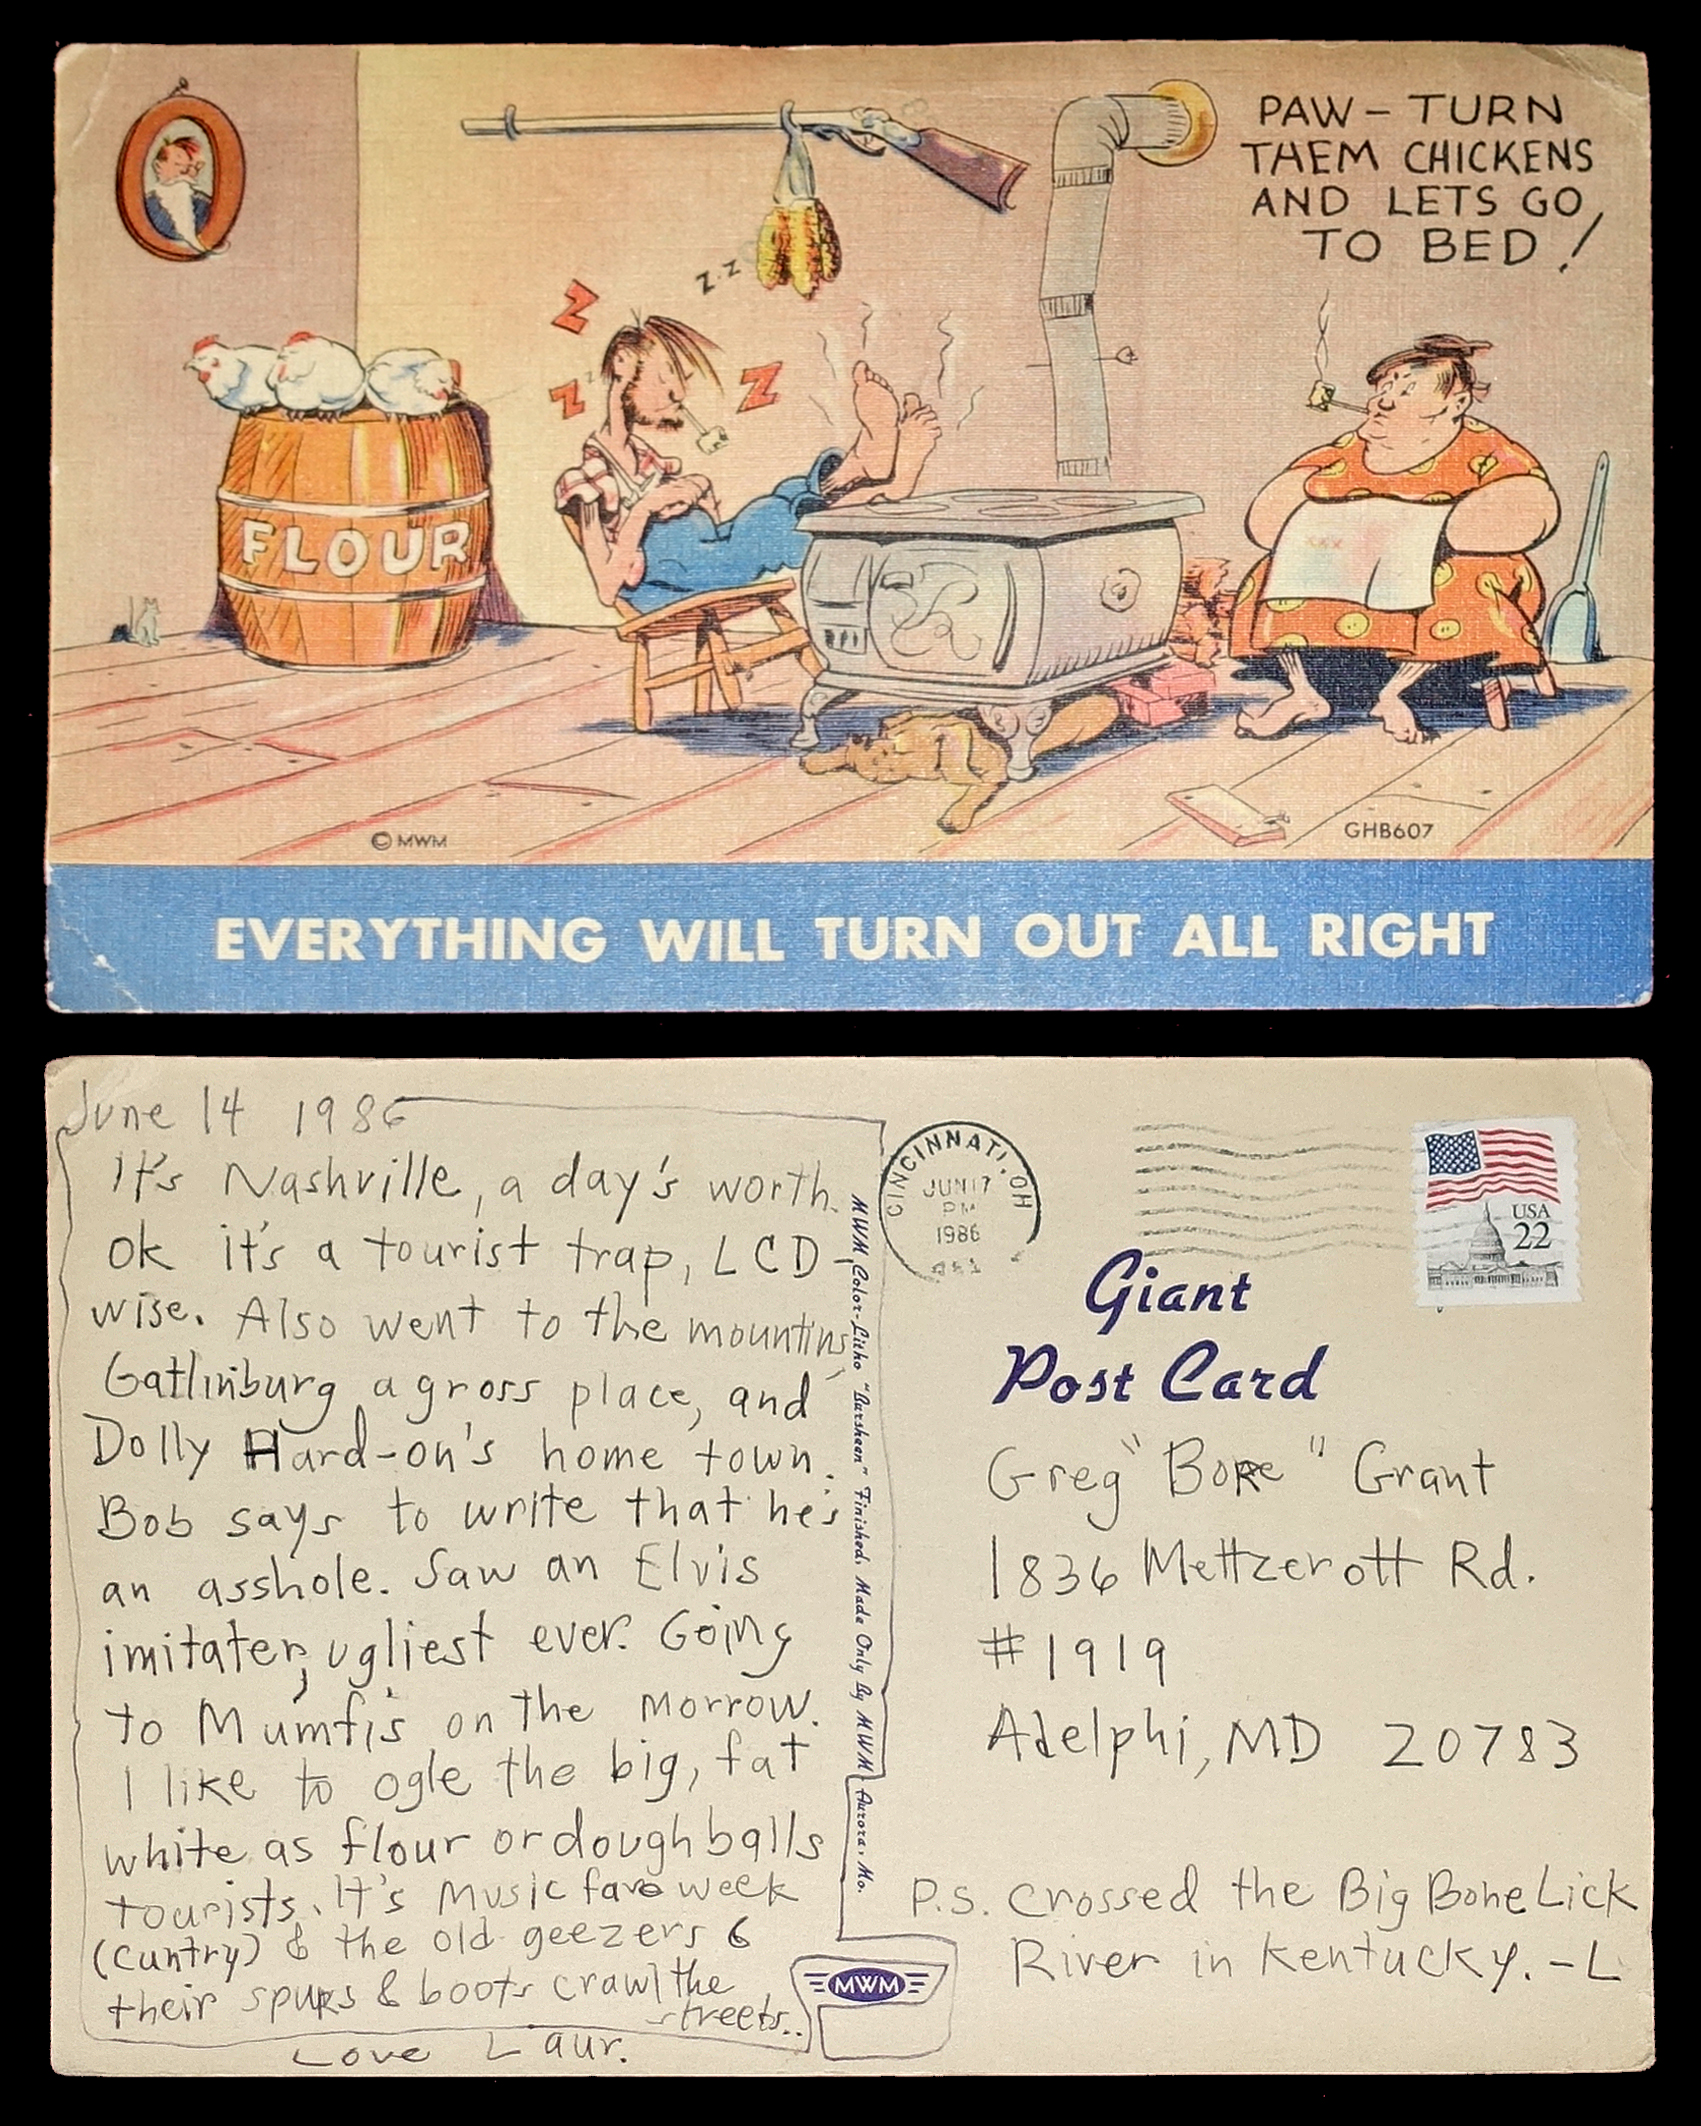 PAW – TURN
THEM CHICKENS
AND LETS GO
TO BED!
FLOUR
xxx
Z
Z·Z
Z
Z
© MWM
GHB607
EVERYTHING WILL TURN OUT ALL RIGHT
June 14 1986
It's Nashville, a day's worth.
Ok it's a tourist trap, LCD-
wise. Also went to the mountins,
Gatlinburg a gross place, and
Dolly Hard-on's home town.
Bob says to write that he's
an asshole. Saw an Elvis
imitater, ugliest ever. Going
to Mumfis on the morrow.
I like to ogle the big, fat
white as flour or doughballs
tourists. It's Music fare week
(cuntry) & the old geezers &
their spurs & boots crawl the
streets..
Love Laur.
MWM Color-Litho "Bursheen" Finished, Made Only By MWM Aurora, Mo.
MWM
CINCINNATI, OH
JUN 17
PM
1986
USA
22
Giant
Post Card
Greg "Bore" Grant
1836 Mettzerott Rd.
#1919
Adelphi, MD 20783
P.S. Crossed the Big Bone Lick
River in Kentucky. -L